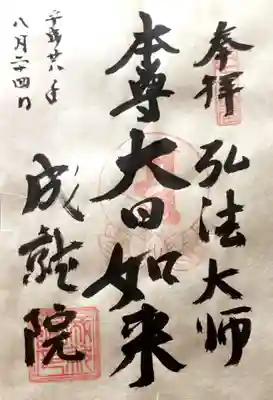 奉拝
弘法大師
本尊大日如来
成就院
平成廿八年
八月二十四日